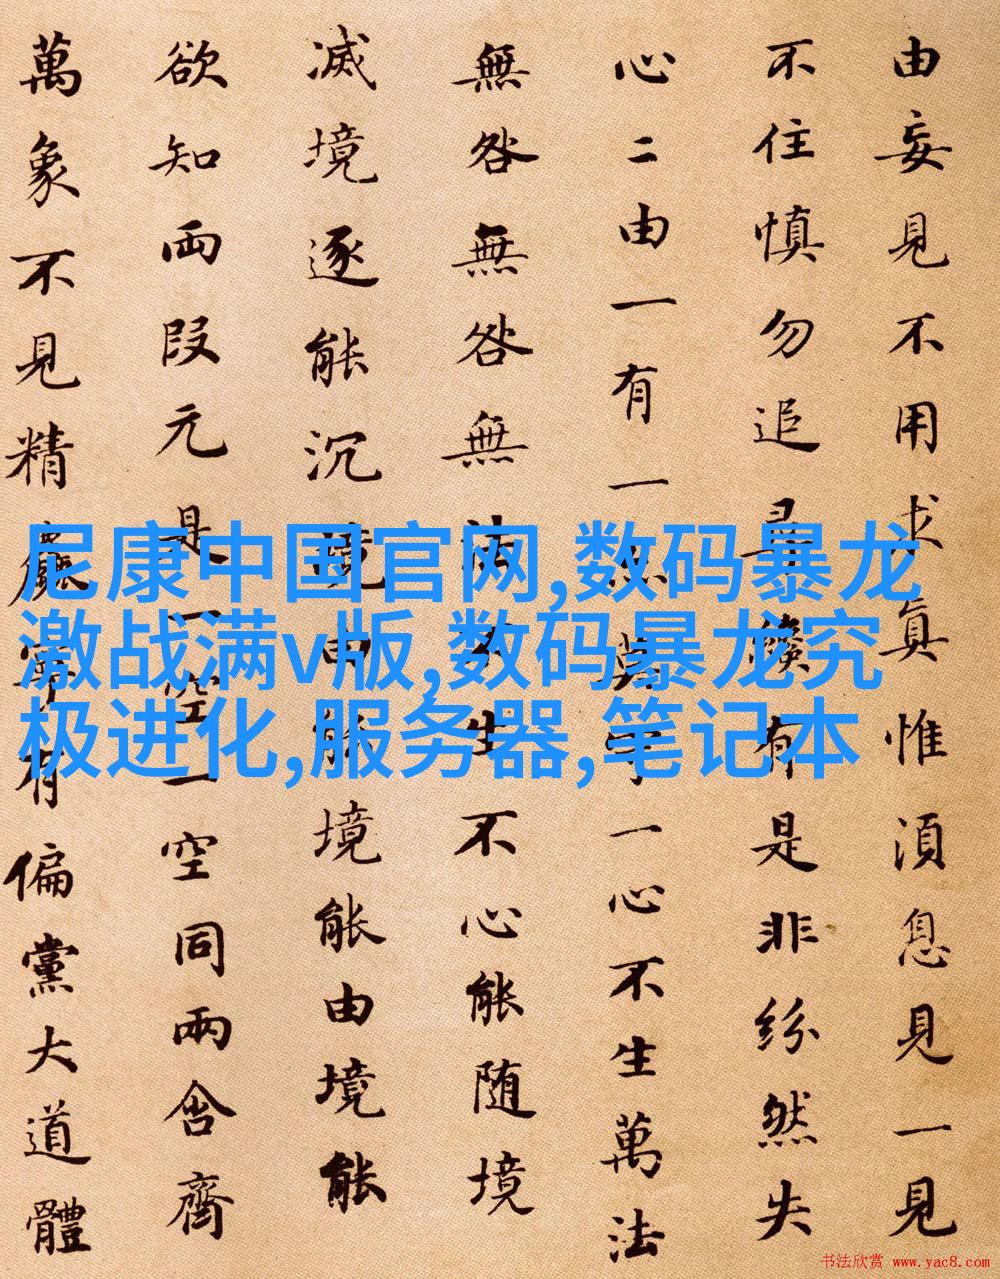 由妄見不用求真惟湏息見一見
不住慎勿追有是非紛然失
心二由一有一亦莫守一心不生萬法
無咎無咎無法不生不心能随境
滅境逐能沉境由能境能由境能
欲知两段元是一空一空同兩含齊
萬象不見精麤寧有偏黨大道體
尼康中国官网,数码暴龙
激战满v版,数码暴龙究
极进化,服务器,笔记本
书法欣赏 www.yac8.com